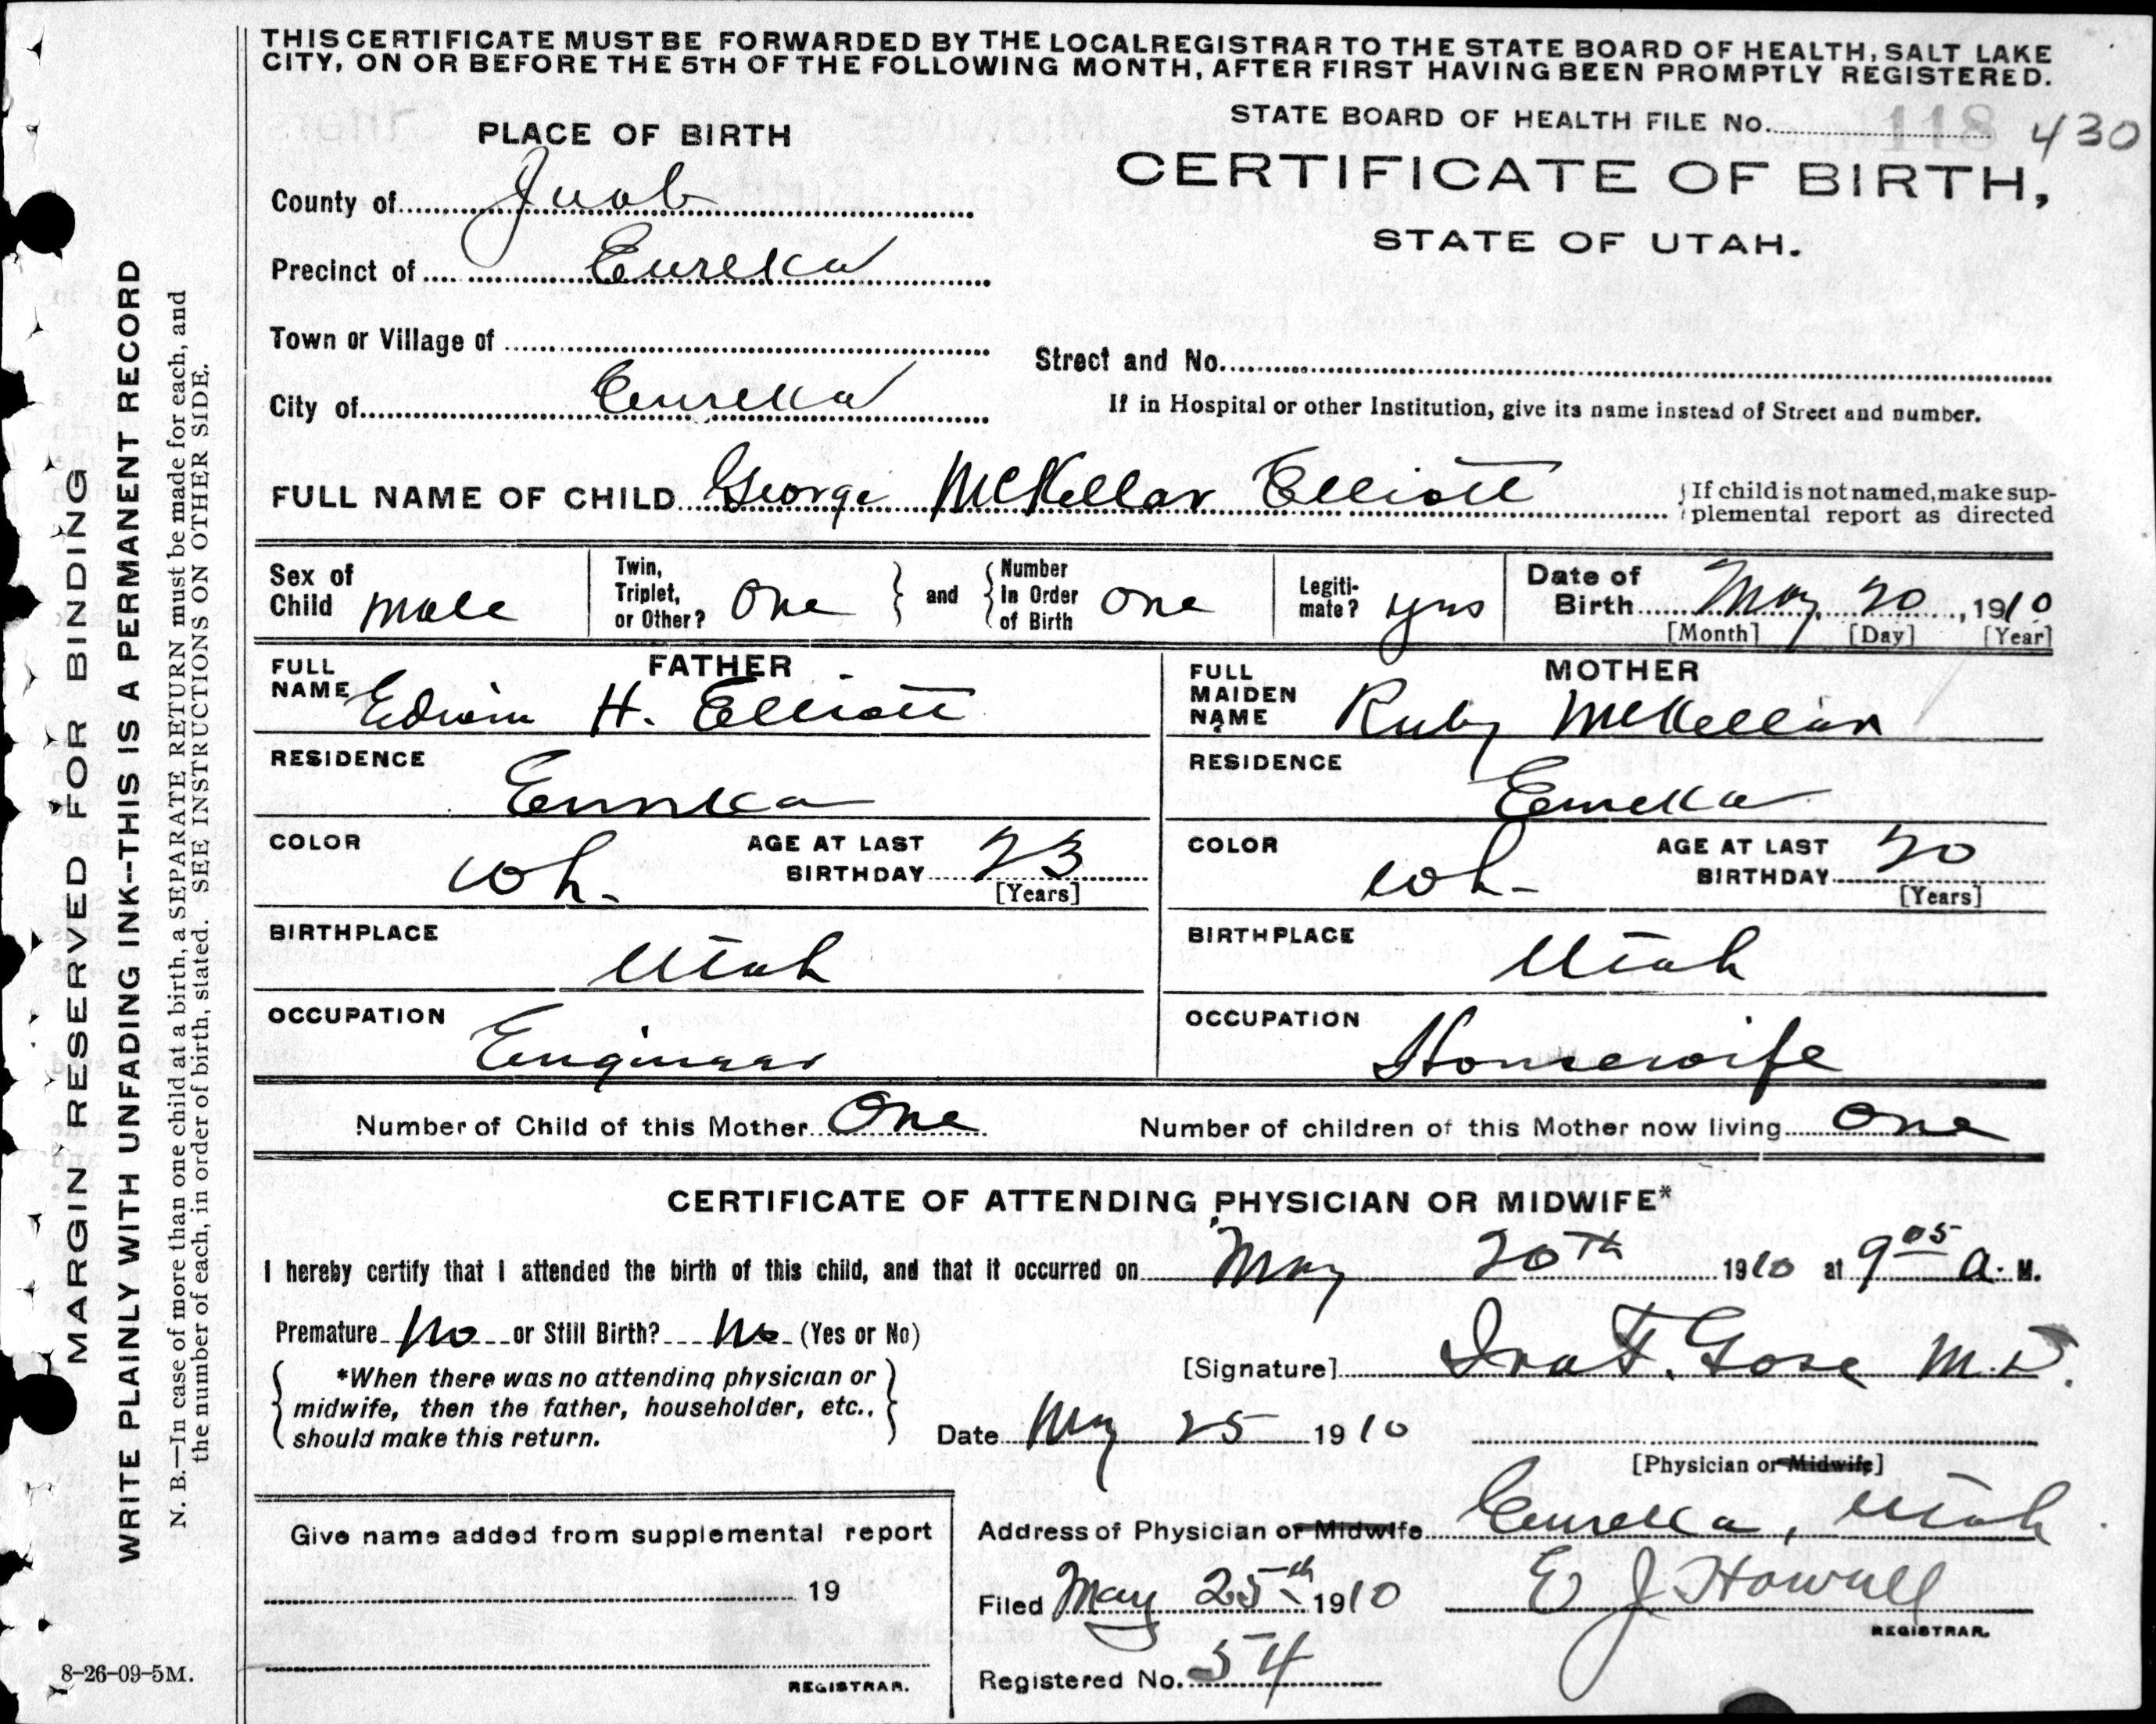 THIS CERTIFICATE MUST BE FORWARDED BY THE LOCAL REGISTRAR TO THE STATE BOARD OF HEALTH, SALT LAKE
CITY, ON OR BEFORE THE 5TH OF THE FOLLOWING MONTH, AFTER FIRST HAVING BEEN PROMPTLY REGISTERED.
STATE BOARD OF HEALTH FILE No. 118 430
PLACE OF BIRTH
CERTIFICATE OF BIRTH,
STATE OF UTAH.
County of Juab
Precinct of Eureka
Town or Village of
Street and No.
City of Eureka
If in Hospital or other Institution, give its name instead of Street and number.
FULL NAME OF CHILD George McKellar Elliott
If child is not named, make sup-
plemental report as directed
Sex of Child male
Twin, Triplet, or Other? One and Number in Order of Birth one
Legiti-mate? yes
Date of Birth May 20, 1910
[Month] [Day] [Year]
FATHER
FULL NAME Edwin H. Elliott
RESIDENCE Eureka
COLOR wh. AGE AT LAST BIRTHDAY 23
[Years]
BIRTHPLACE Utah
OCCUPATION Engineer
MOTHER
FULL MAIDEN NAME Ruby McKellar
RESIDENCE Eureka
COLOR wh- AGE AT LAST BIRTHDAY 20
[Years]
BIRTHPLACE Utah
OCCUPATION Housewife
Number of Child of this Mother One Number of children of this Mother now living one
CERTIFICATE OF ATTENDING PHYSICIAN OR MIDWIFE*
I hereby certify that I attended the birth of this child, and that it occurred on May 20th 1910 at 9 05 a. M.
Premature no or Still Birth? no (Yes or No)
*When there was no attending physician or
midwife, then the father, householder, etc.,
should make this return.
[Signature] Gose M.D.
Date May 25 1910
[Physician or Midwife]
Give name added from supplemental report
19
REGISTRAR.
Address of Physician or Midwife Eureka, Utah
Filed May 25th 1910 E J Howell
REGISTRAR.
Registered No. 54
8-26-09-5M.
MARGIN RESERVED FOR BINDING
WRITE PLAINLY WITH UNFADING INK--THIS IS A PERMANENT RECORD
N. B.—In case of more than one child at a birth, a SEPARATE RETURN must be made for each, and
the number of each, in order of birth, stated. SEE INSTRUCTIONS ON OTHER SIDE.